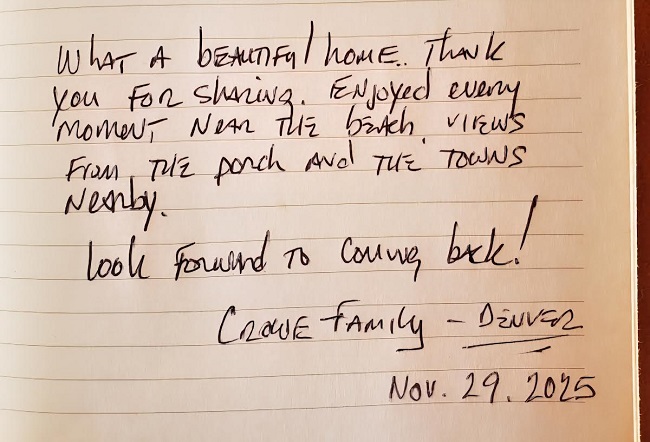 What a beautiful home.. Thank
you for sharing. Enjoyed every
moment, near the beach, views
from the porch and the towns
nearby.
Look forward to coming back!
Crowe Family - Denver
Nov. 29. 2025